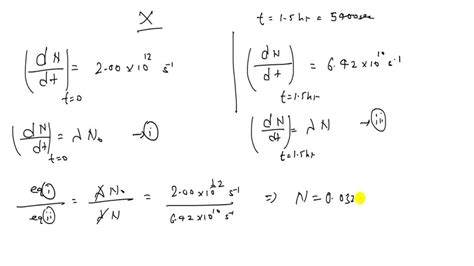 X
t = 1.5 hr = 5400 sec
(dN/dt)t=0 = 2.00 × 10^12 s^-1
(dN/dt)t=1.5hr = 6.42 × 10^10 s^-1
(dN/dt)t=0 = λ N₀ → (i)
(dN/dt)t=1.5hr = λ N → (ii)
eq (i)/eq (ii) = λ N₀/λ N = 2.00 × 10^12 s^-1/6.42 × 10^10 s^-1 ⇒ N = 0.032